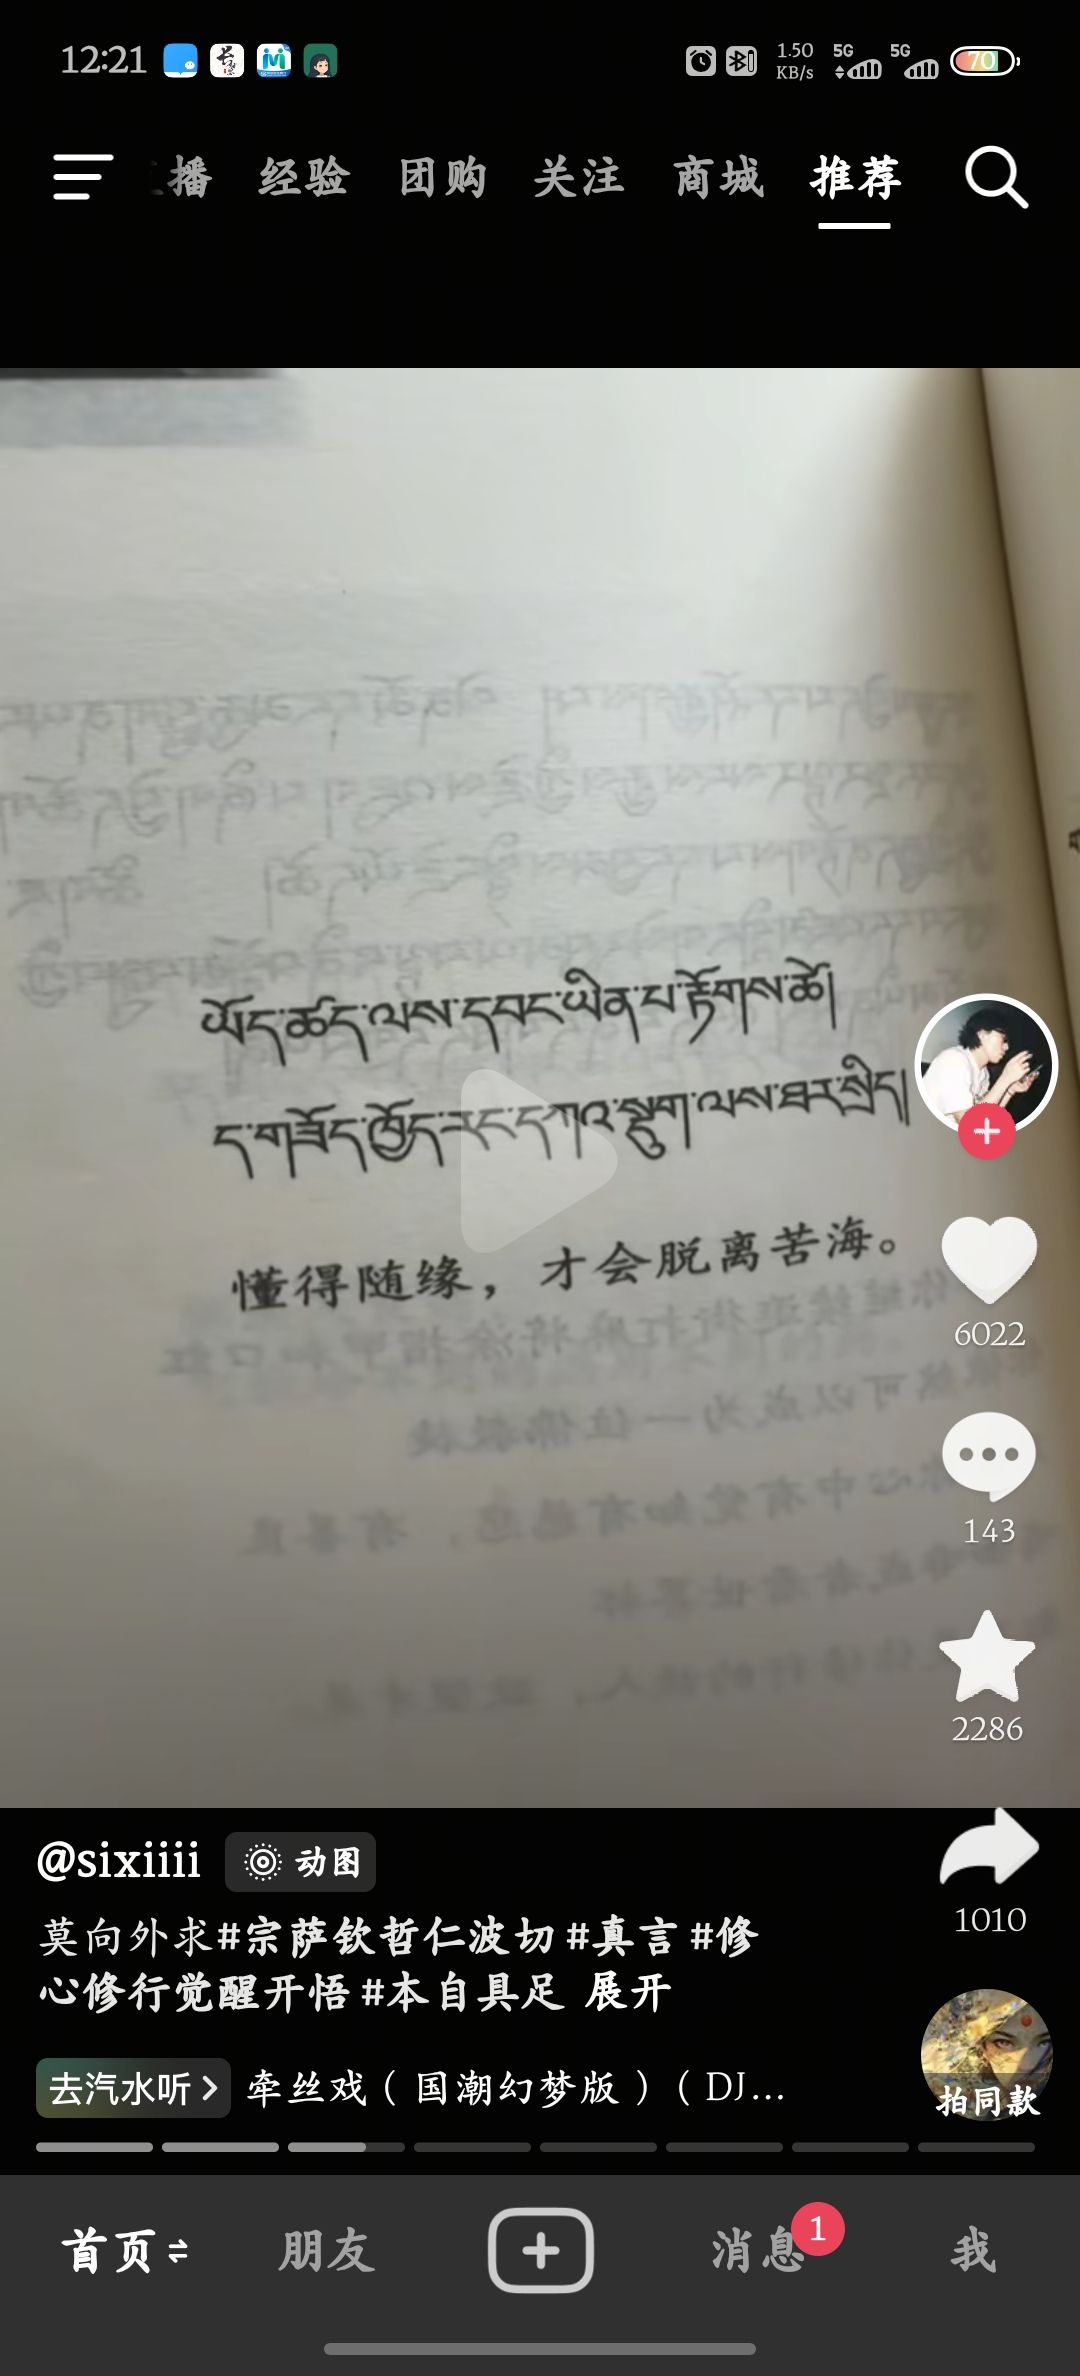 12:21
1.50
KB/s
5G
5G
70
播 经验 团购 关注 商城 推荐
ཡོད་ཚད་ལས་དབང་ཡིན་པ་རྟོགས་ཚེ།
ད་གཟོད་ཁྱོད་རང་དཀའ་སྡུག་ལས་ཐར་སྲིད།
懂得随缘，才会脱离苦海。
6022
143
2286
1010
@sixiiii 动图
莫向外求#宗萨钦哲仁波切 #真言 #修
心修行觉醒开悟 #本自具足 展开
去汽水听 牵丝戏（国潮幻梦版）（DJ...
拍同款
首页 朋友 消息 1 我